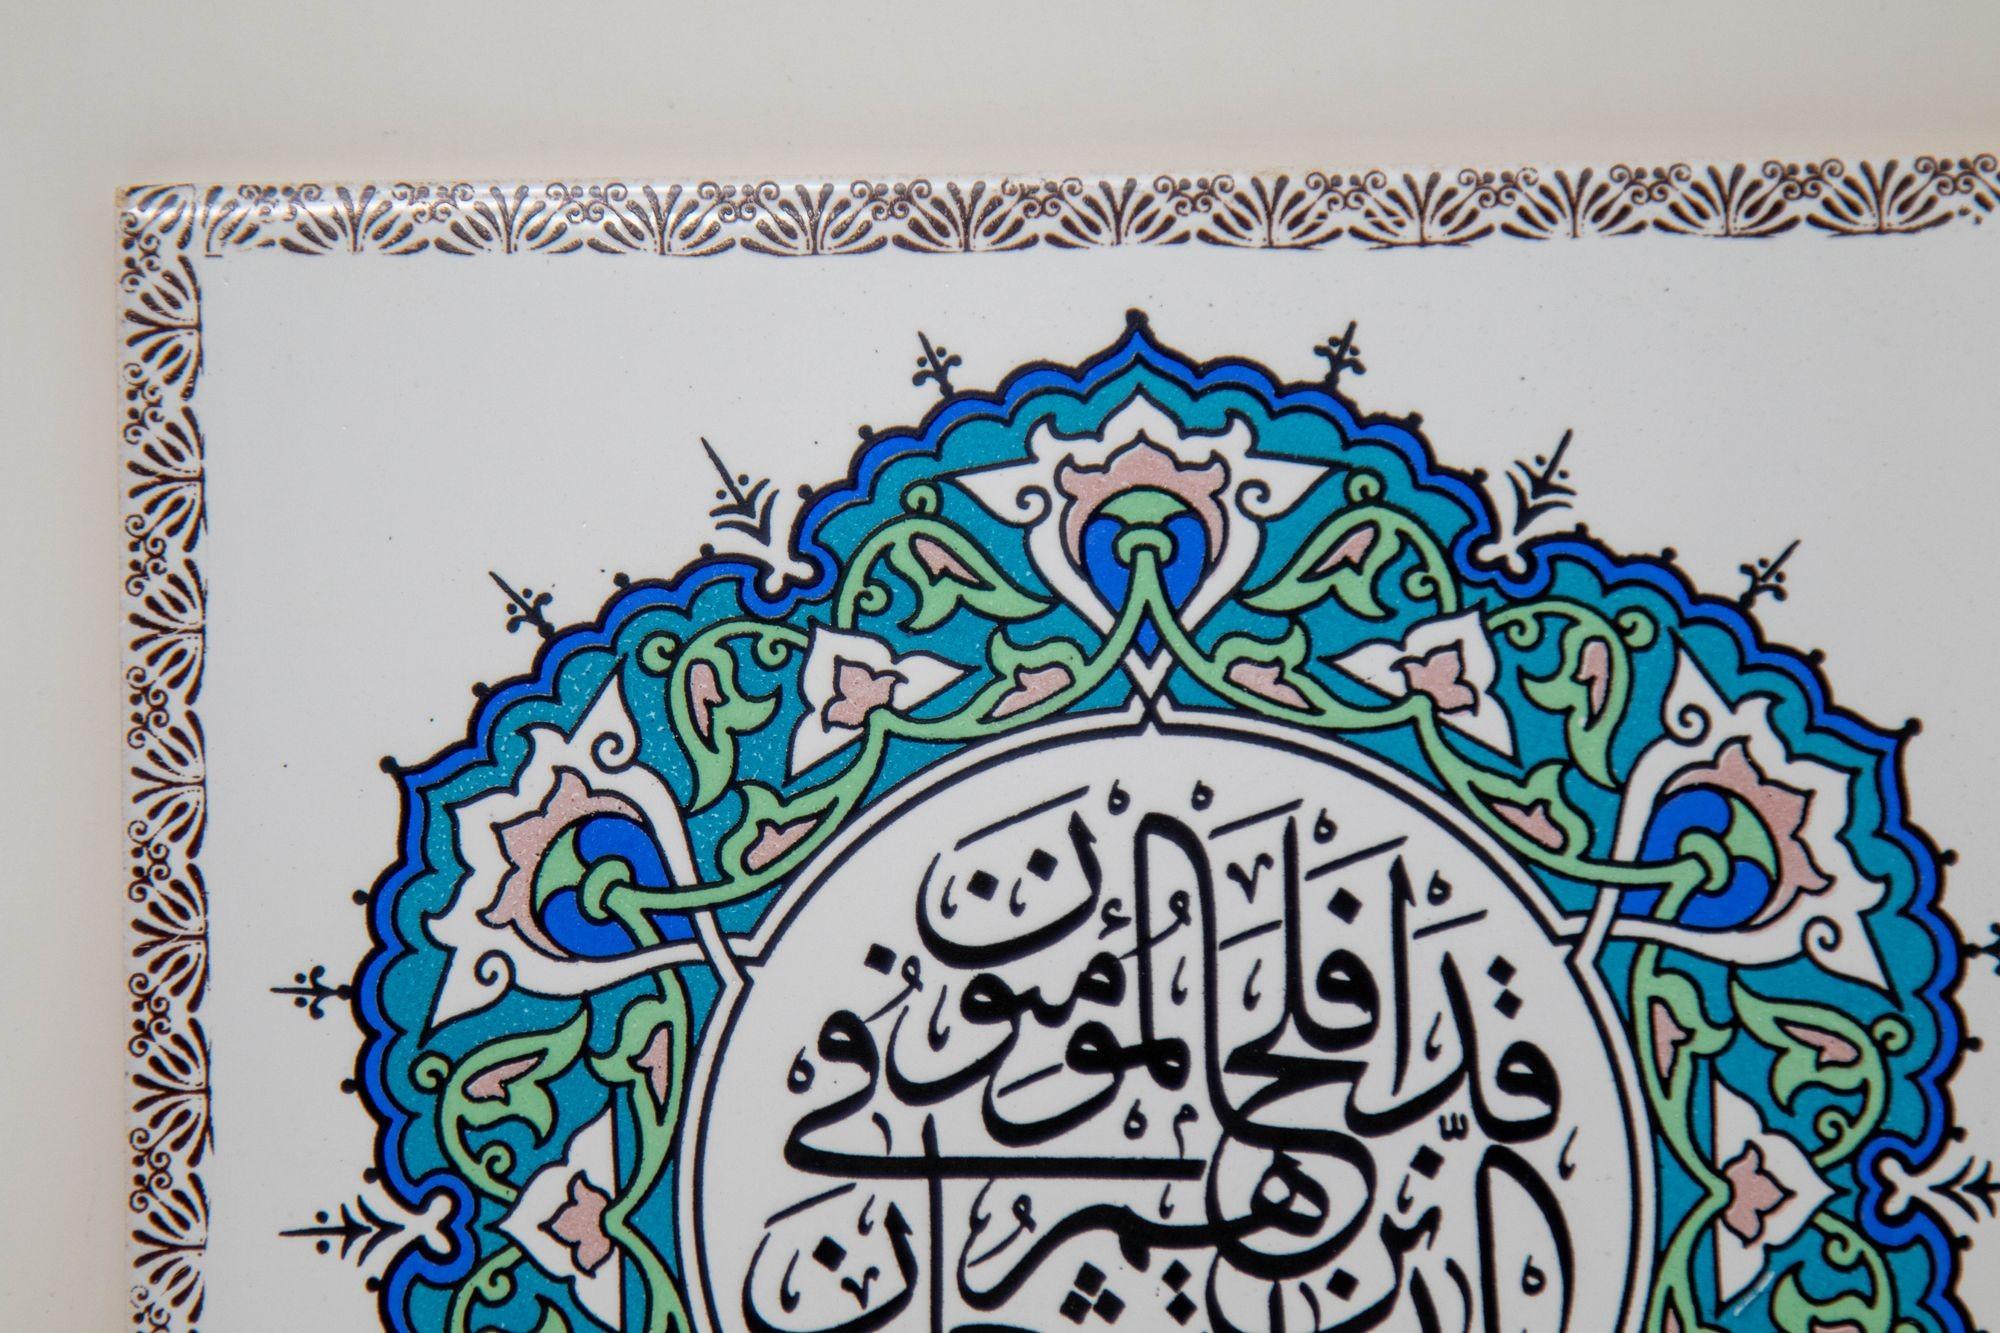 قَدْ اَفْلَحَ الْمُؤْمِنُونَ
الَّذِينَ هُمْ فِي